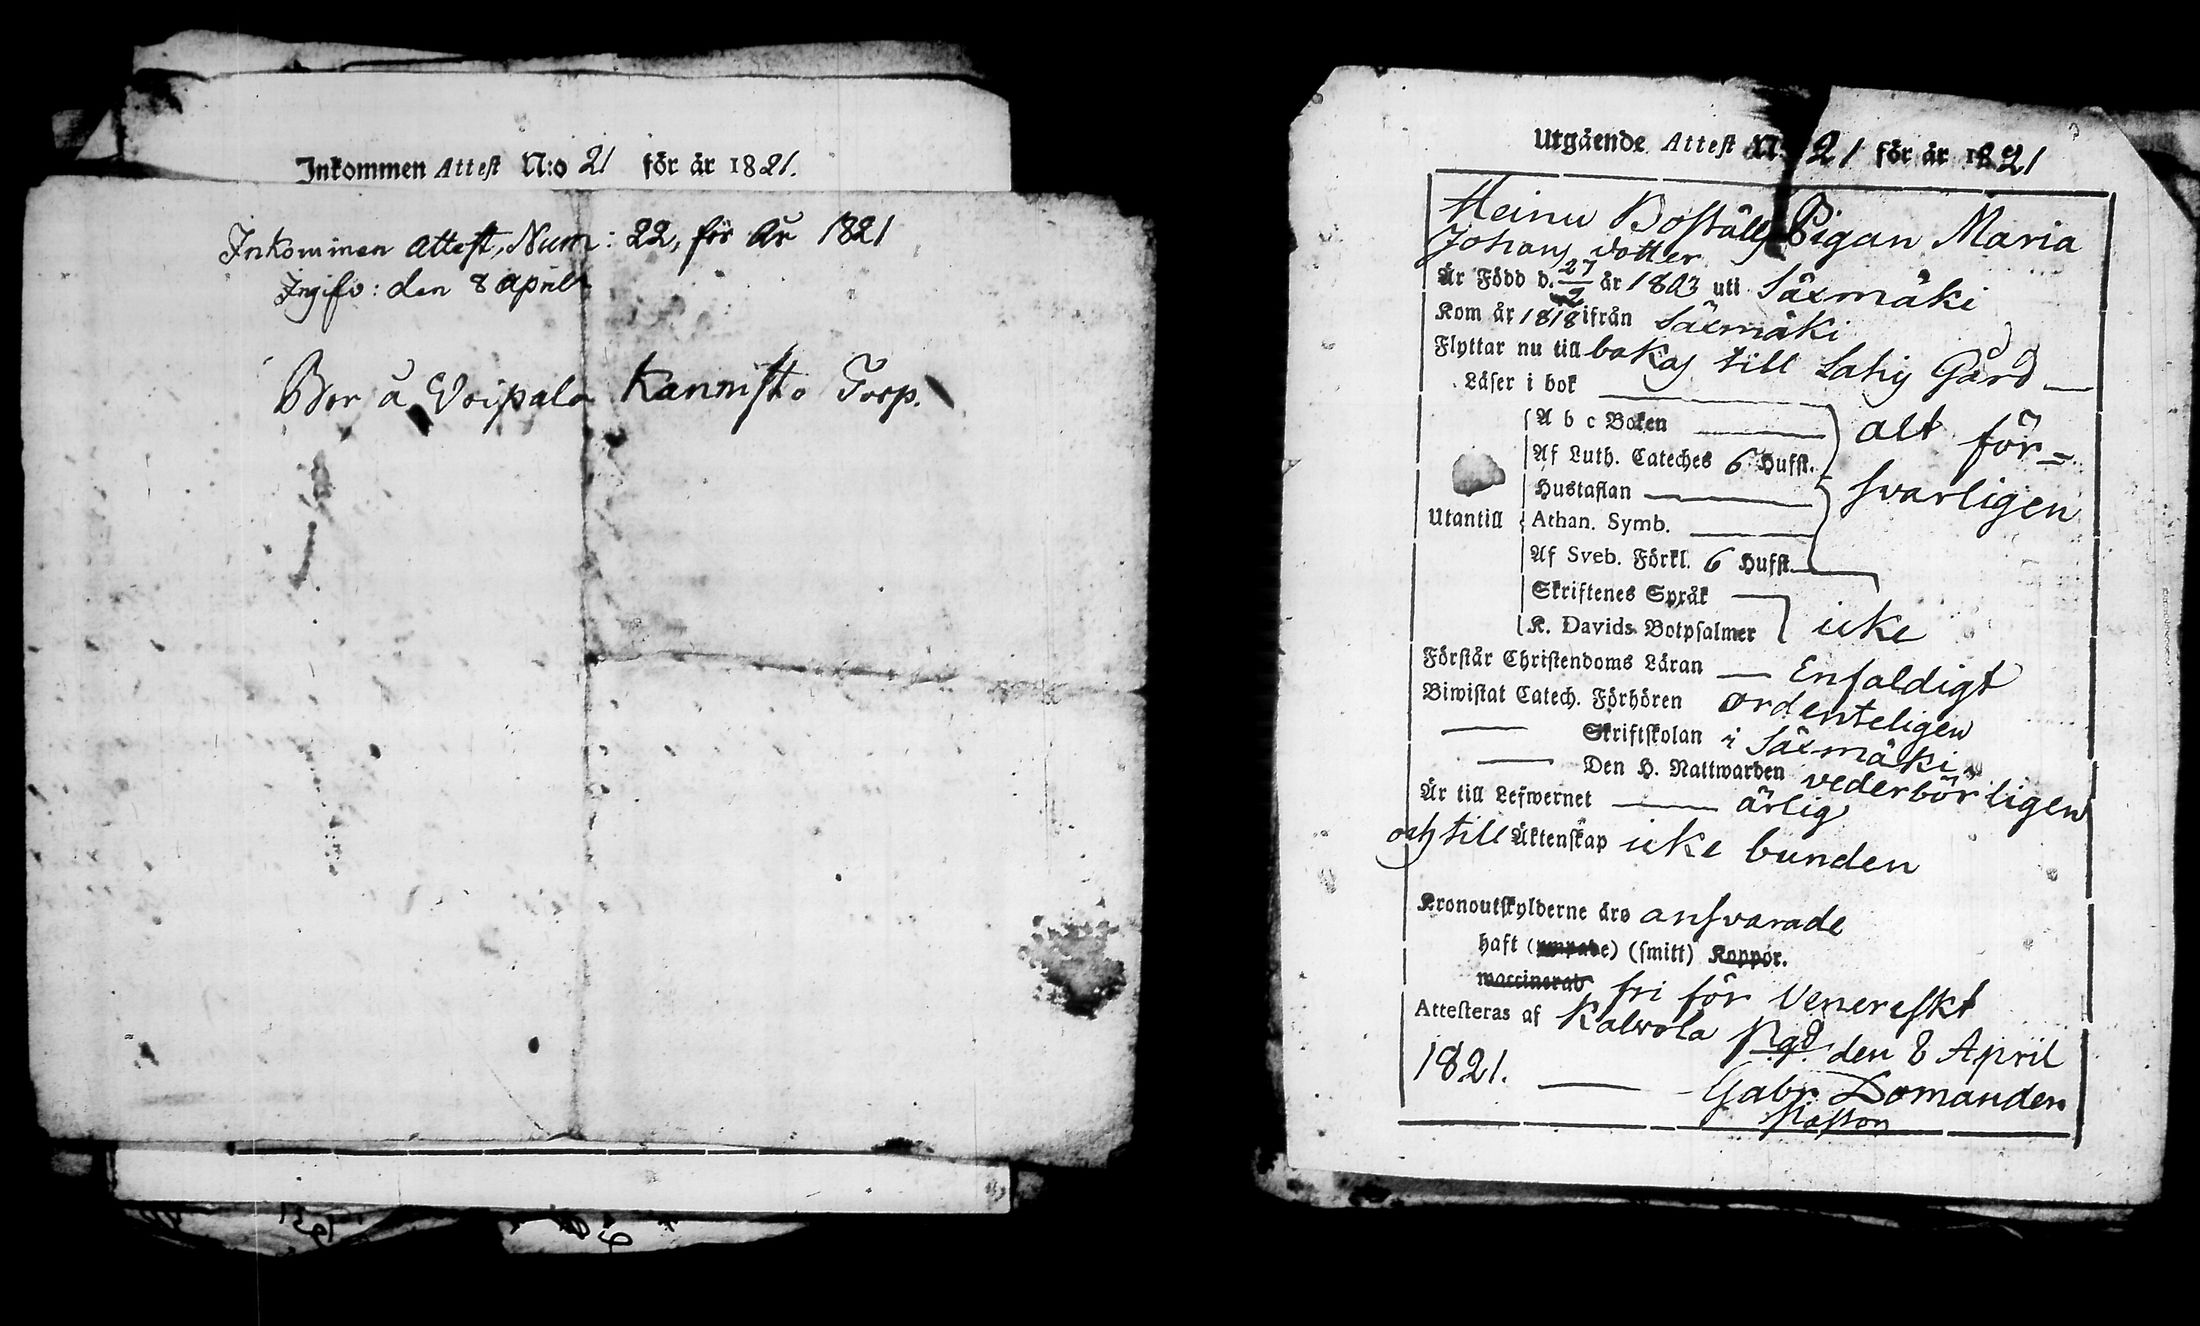 Inkommen Attest N:o 21 för år 1821.
Inkommen Attest, Num: 22, för År 1821
Ingifv: den 8 April
Bor å Voipala Kannisto Torp.
Utgående Attest N:o 21 för år 1821
Heinu Boställs Pigan Maria
Johans dotter
Är Född d. 27/2 år 1803 uti Säxmäki
Kom år 1818 ifrån Säxmäki
Flyttar nu till bakas till Lahis Gård
Läser i bok
A b c Boken
alt för=
Af Luth. Cateches 6 Hufst.
Hustaflan
svarligen
Utantill Athan. Symb.
Af Sveb. Förkl. 6 Hufst.
Skriftenes Språk
K. Davids Botpsalmer icke
Förstår Christendoms Läran Enfaldigt
Biwistat Catech. Förhören ordenteligen
Skriftskolan i Säxmäki
Den H. Nattwarden vederbörligen
Är till Lefwernet ärlig
och till Äktenskap icke bunden
Kronoutskylderne äro ansvarade
haft (smitt) Koppor.
waccinerad fri för Venereskt
Attesteras af Kalvola Pgd den 8 April
1821. Gabr. Domander
Pastor